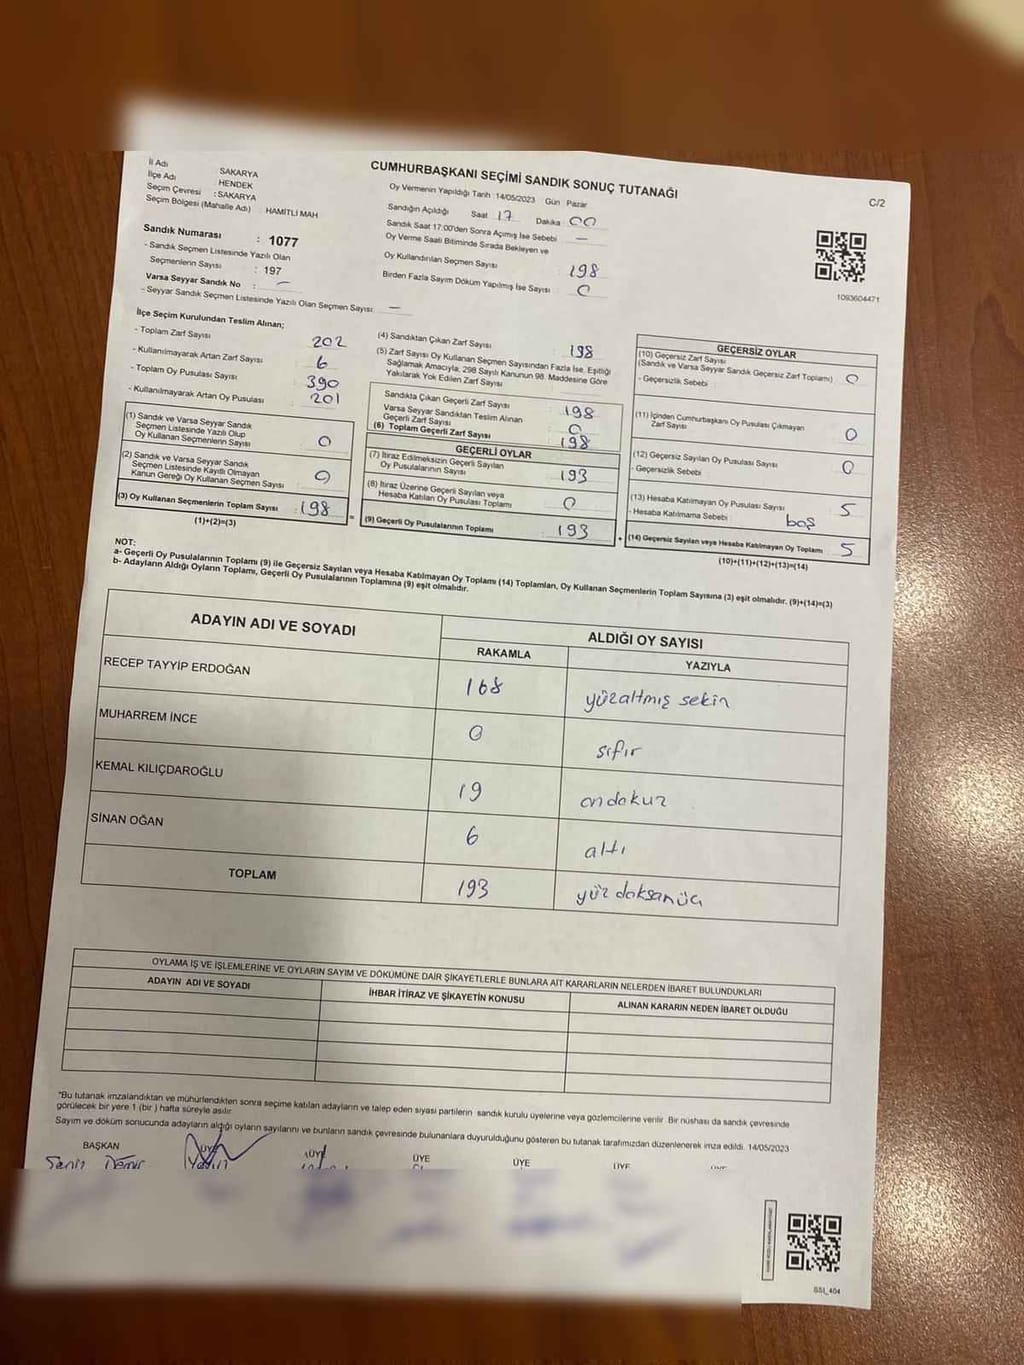 CUMHURBAŞKANI SEÇİMİ SANDIK SONUÇ TUTANAĞI
C/2
İl Adı SAKARYA
İlçe Adı HENDEK
Seçim Çevresi : SAKARYA
Seçim Bölgesi (Mahalle Adı) : HAMİTLİ MAH
Sandık Numarası : 1077
- Sandık Seçmen Listesinde Yazılı Olan
Seçmenlerin Sayısı : 197
Varsa Seyyar Sandık No : —
- Seyyar Sandık Seçmen Listesinde Yazılı Olan Seçmen Sayısı: —
Oy Vermenin Yapıldığı Tarih :14/05/2023 Gün Pazar
Sandığın Açıldığı Saat 17 Dakika 00
Sandık Saat 17:00'den Sonra Açımış İse Sebebi —
Oy Verme Saati Bitiminde Sırada Bekleyen ve
Oy Kullandırılan Seçmen Sayısı 198
Birden Fazla Sayım Döküm Yapılmış İse Sayısı 0
1093604471
İlçe Seçim Kurulundan Teslim Alınan;
- Toplam Zarf Sayısı 202
- Kullanılmayarak Artan Zarf Sayısı 6
- Toplam Oy Pusulası Sayısı 390
- Kullanılmayarak Artan Oy Pusulası 201
(1) Sandık ve Varsa Seyyar Sandık
Seçmen Listesinde Yazılı Olup
Oy Kullanan Seçmenlerin Sayısı 0
(2) Sandık ve Varsa Seyyar Sandık
Seçmen Listesinde Kayıtlı Olmayan
Kanun Gereği Oy Kullanan Seçmen Sayısı 0
(3) Oy Kullanan Seçmenlerin Toplam Sayısı : 198
(1)+(2)=(3)
(4) Sandıktan Çıkan Zarf Sayısı : 198
(5) Zarf Sayısı Oy Kullanan Seçmen Sayısından Fazla İse, Eşitliği
Sağlamak Amacıyla, 298 Sayılı Kanunun 98. Maddesine Göre
Yakılarak Yok Edilen Zarf Sayısı
Sandıkta Çıkan Geçerli Zarf Sayısı : 198
Varsa Seyyar Sandıktan Teslim Alınan
Geçerli Zarf Sayısı : 0
(6) Toplam Geçerli Zarf Sayısı : 198
GEÇERLİ OYLAR
(7) İtiraz Edilmeksizin Geçerli Sayılan
Oy Pusulalarının Sayısı : 193
(8) İtiraz Üzerine Geçerli Sayılan veya
Hesaba Katılan Oy Pusulası Toplamı : 0
= (9) Geçerli Oy Pusulalarının Toplamı : 193
GEÇERSİZ OYLAR
(10) Geçersiz Zarf Sayısı
(Sandık ve Varsa Seyyar Sandık Geçersiz Zarf Toplamı) : 0
- Geçersizlik Sebebi
(11) İçinden Cumhurbaşkanı Oy Pusulası Çıkmayan
Zarf Sayısı 0
(12) Geçersiz Sayılan Oy Pusulası Sayısı : 0
- Geçersizlik Sebebi
(13) Hesaba Katılmayan Oy Pusulası Sayısı : 5
- Hesaba Katılmama Sebebi : boş
+ (14) Geçersiz Sayılan veya Hesaba Katılmayan Oy Toplamı : 5
(10)+(11)+(12)+(13)=(14)
NOT:
a- Geçerli Oy Pusulalarının Toplamı (9) ile Geçersiz Sayılan veya Hesaba Katılmayan Oy Toplamı (14) Toplamları, Oy Kullanan Seçmenlerin Toplam Sayısına (3) eşit olmalıdır. (9)+(14)=(3)
b- Adayların Aldığı Oyların Toplamı, Geçerli Oy Pusulalarının Toplamına (9) eşit olmalıdır.
ADAYIN ADI VE SOYADI ALDIĞI OY SAYISI
RAKAMLA YAZIYLA
RECEP TAYYİP ERDOĞAN 168 yüzaltmış sekiz
MUHARREM İNCE 0 sıfır
KEMAL KILIÇDAROĞLU 19 ondokuz
SİNAN OĞAN 6 altı
TOPLAM 193 yüz doksanüç
OYLAMA İŞ VE İŞLEMLERİNE VE OYLARIN SAYIM VE DÖKÜMÜNE DAİR ŞİKAYETLERLE BUNLARA AİT KARARLARIN NELERDEN İBARET BULUNDUKLARI
ADAYIN ADI VE SOYADI İHBAR İTİRAZ VE ŞİKAYETİN KONUSU ALINAN KARARIN NEDEN İBARET OLDUĞU
"Bu tutanak imzalandıktan ve mühürlendikten sonra seçime katılan adayların ve talep eden siyasi partilerin sandık kurulu üyelerine veya gözlemcilerine verilir. Bir nüshası da sandık çevresinde
görülecek bir yere 1 (bir ) hafta süreyle asılır.
Sayım ve döküm sonucunda adayların aldığı oyların sayılarını ve bunların sandık çevresinde bulunanlara duyurulduğunu gösteren bu tutanak tarafımızdan düzenlenerek imza edildi. 14/05/2023
BAŞKAN ÜYE ÜYE ÜYE ÜYE ÜYE
Demir
SSI_404